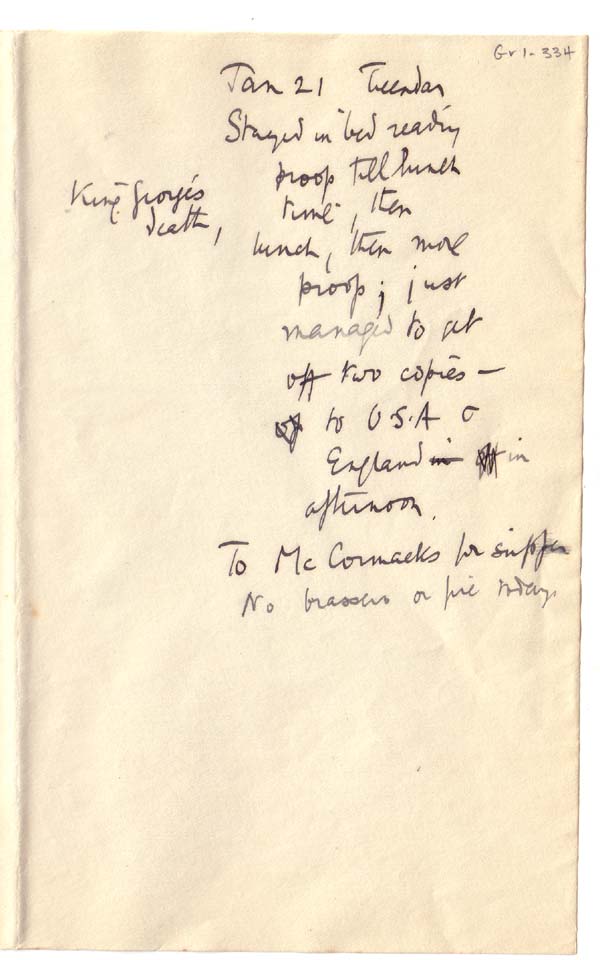 Gr1-334
Jan 21 Tuesday
Stayed in bed reading
proofs till lunch
King George's
death,
time, then
lunch, then more
proofs; just
managed to get
off two copies —
to U.S.A &
England in
afternoon.
To McCormacks for supper
No brasero or fire today